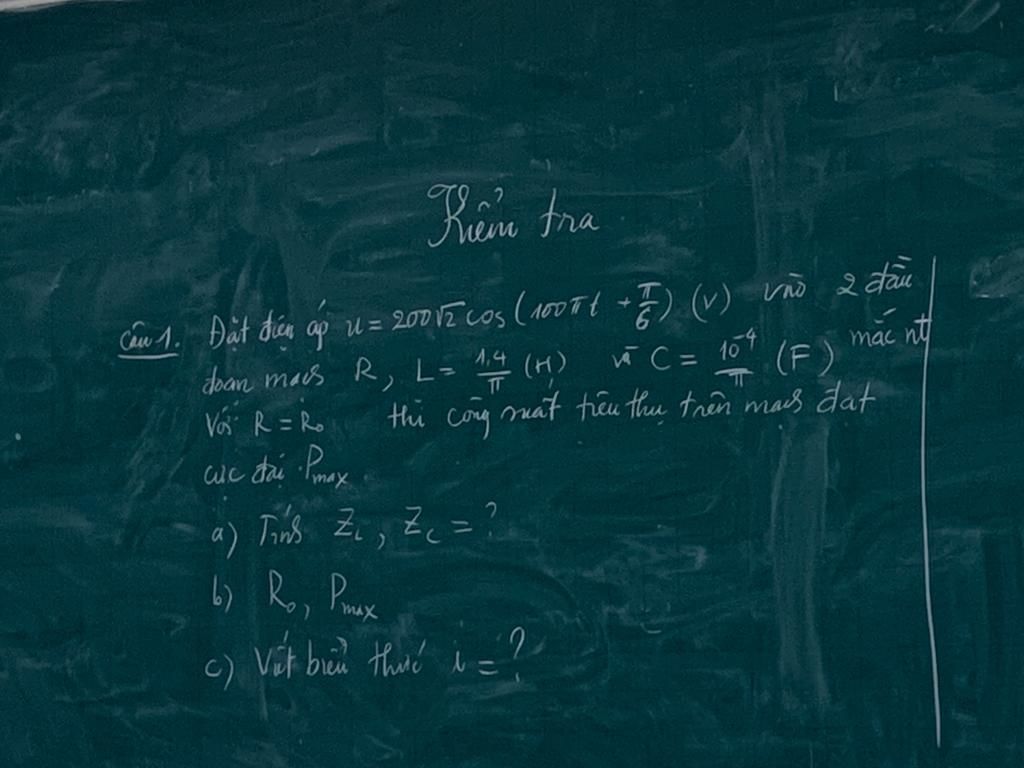 Kiểm tra
Câu 1. Đặt điện áp u = 200√2 cos (100πt + π/6) (V) vào 2 đầu
đoạn mạch R, L = 1,4/π (H) và C = 10⁻⁴/π (F) mắc nt
Với R = R₀ thì công suất tiêu thụ trên mạch đạt
cực đại Pmax
a) Tính Z_L, Z_C = ?
b) R₀, Pmax
c) Viết biểu thức i = ?